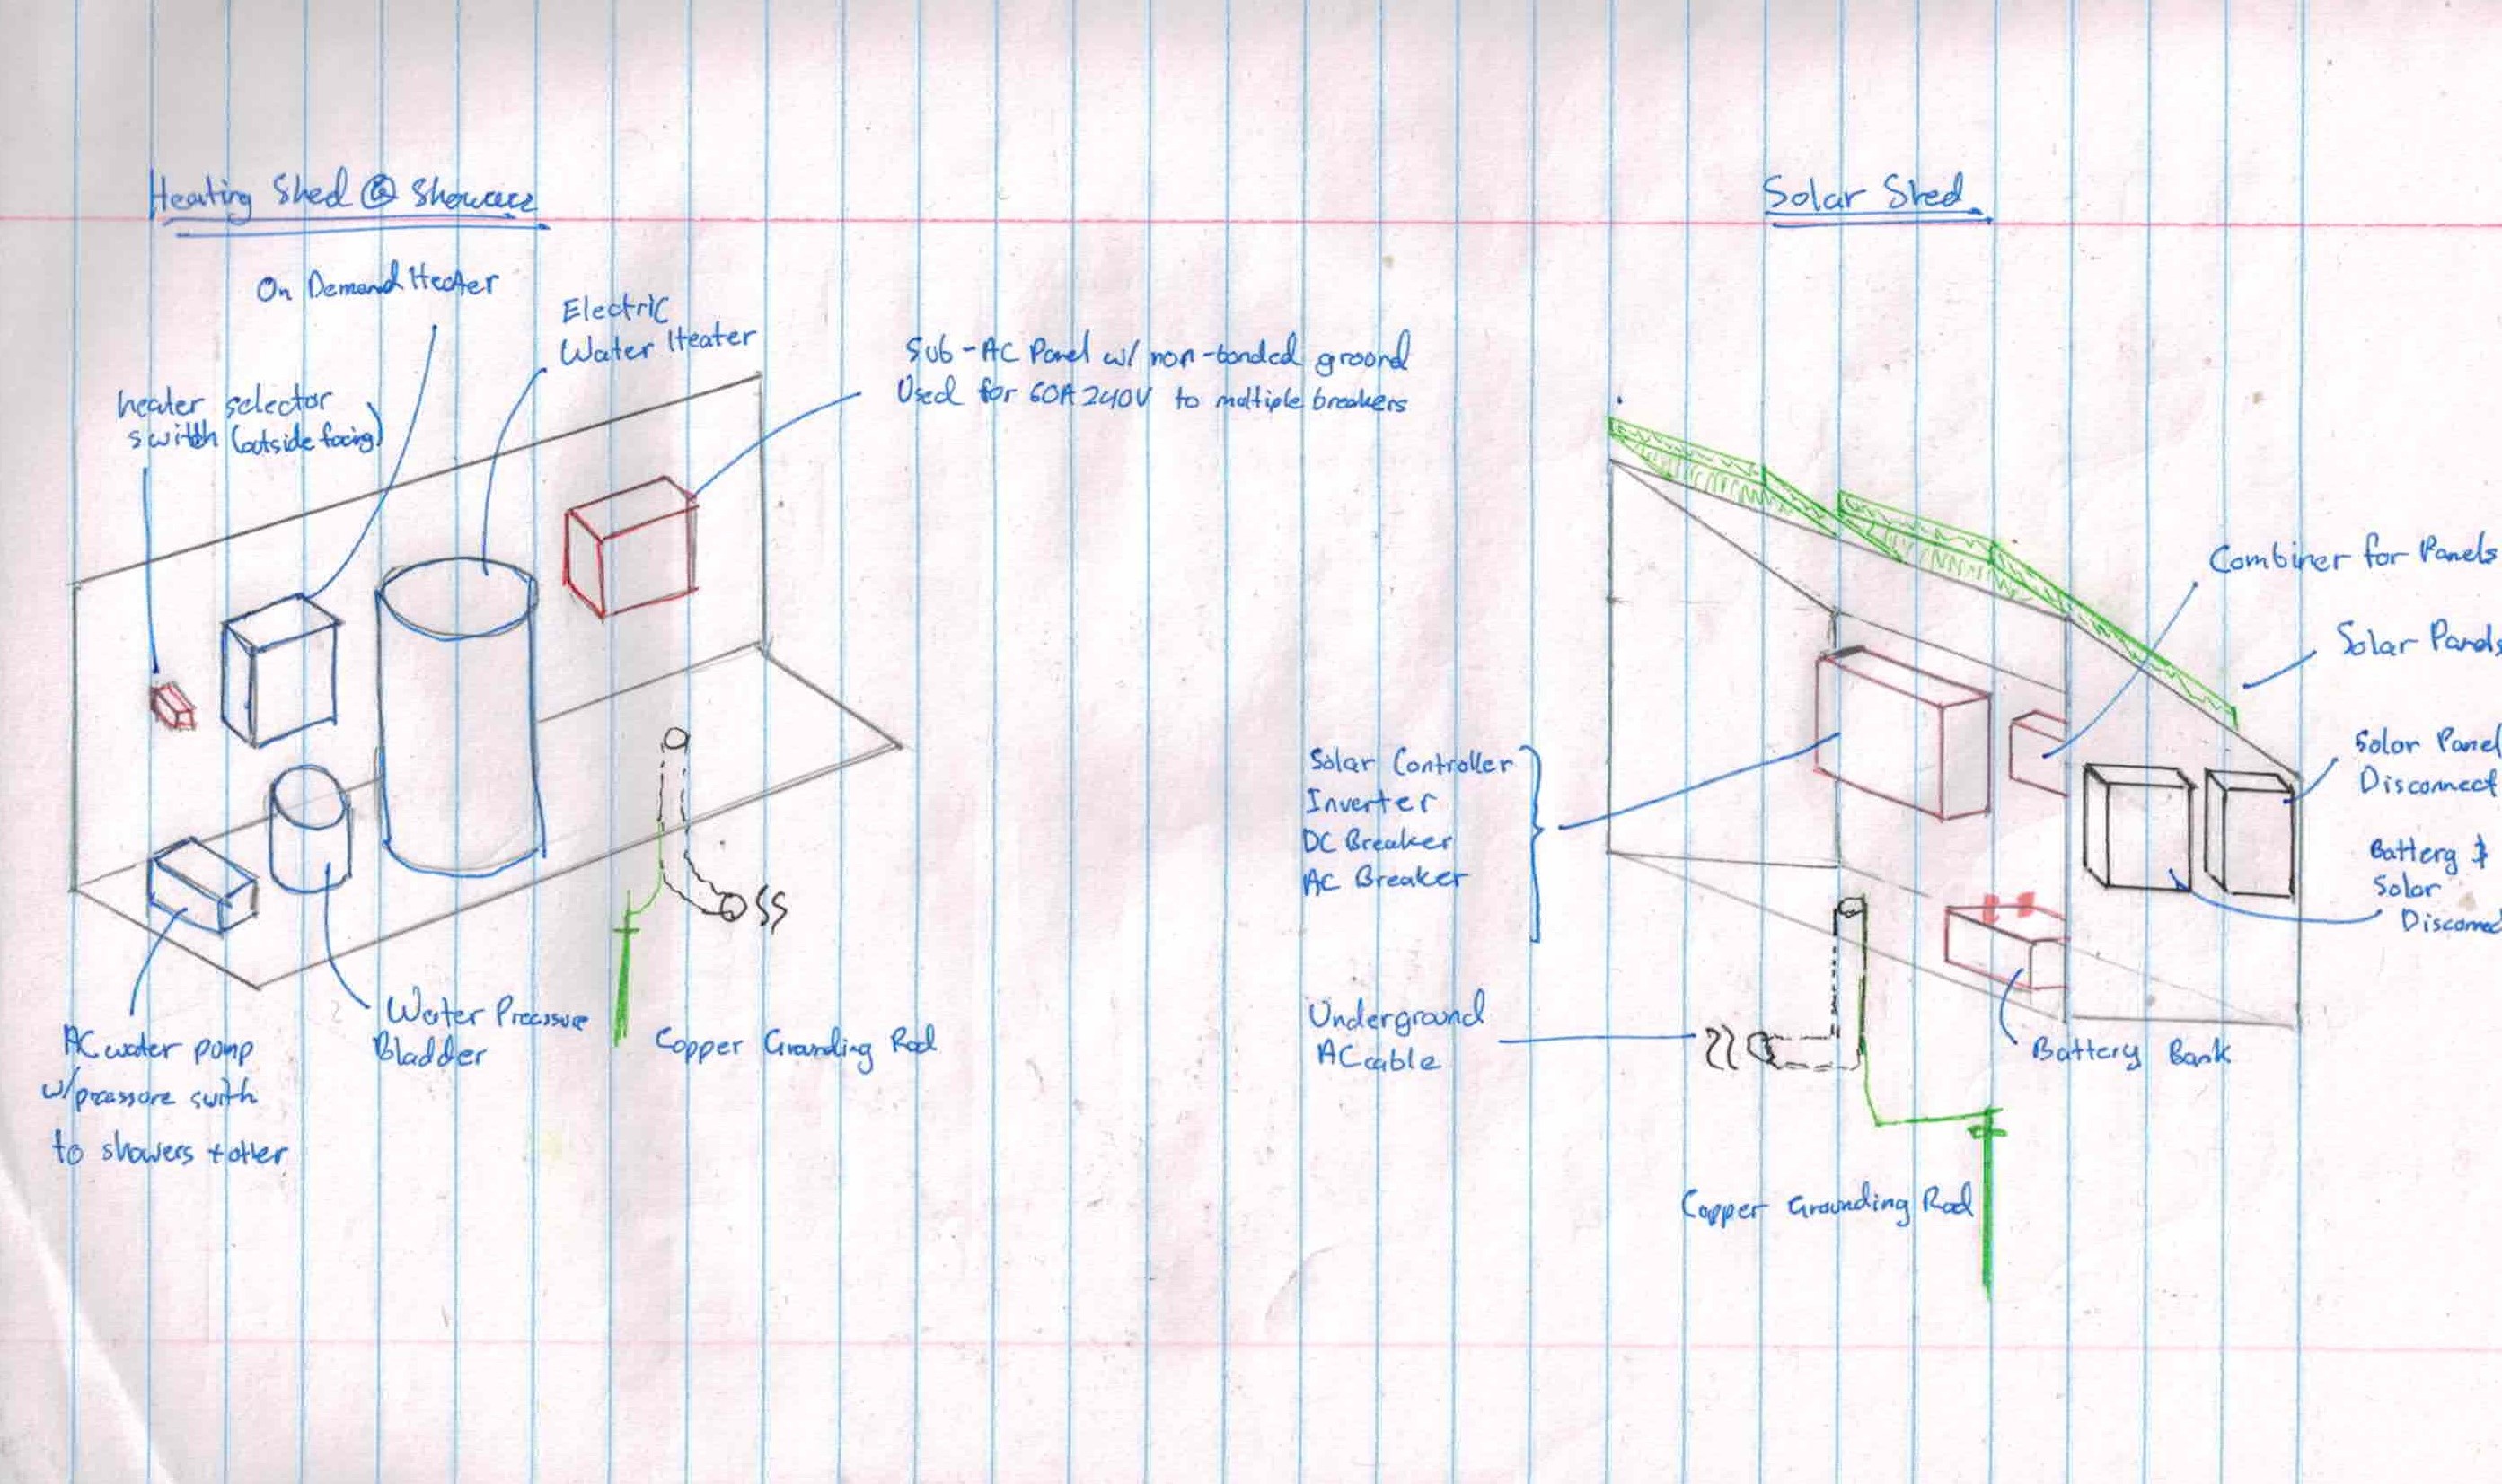 Heating Shed @ Showers
On Demand Heater
Electric
Water Heater
heater selector
switch (outside facing)
Sub-AC Panel w/ non-bonded ground
Used for 60A 240V to multiple breakers
AC water pump
w/pressure swith
to showers + other
Water Pressure
Bladder
Copper Grounding Rod
Solar Shed
Combiner for Panels
Solar Panels
Solar Panel
Disconnect
Battery &
Solar
Disconnec
Solar Controller
Inverter
DC Breaker
AC Breaker
Underground
AC cable
Battery Bank
Copper Grounding Rod